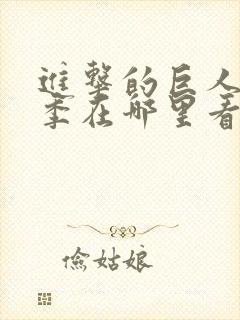 進擊的巨人
季在哪里看
俭姑娘